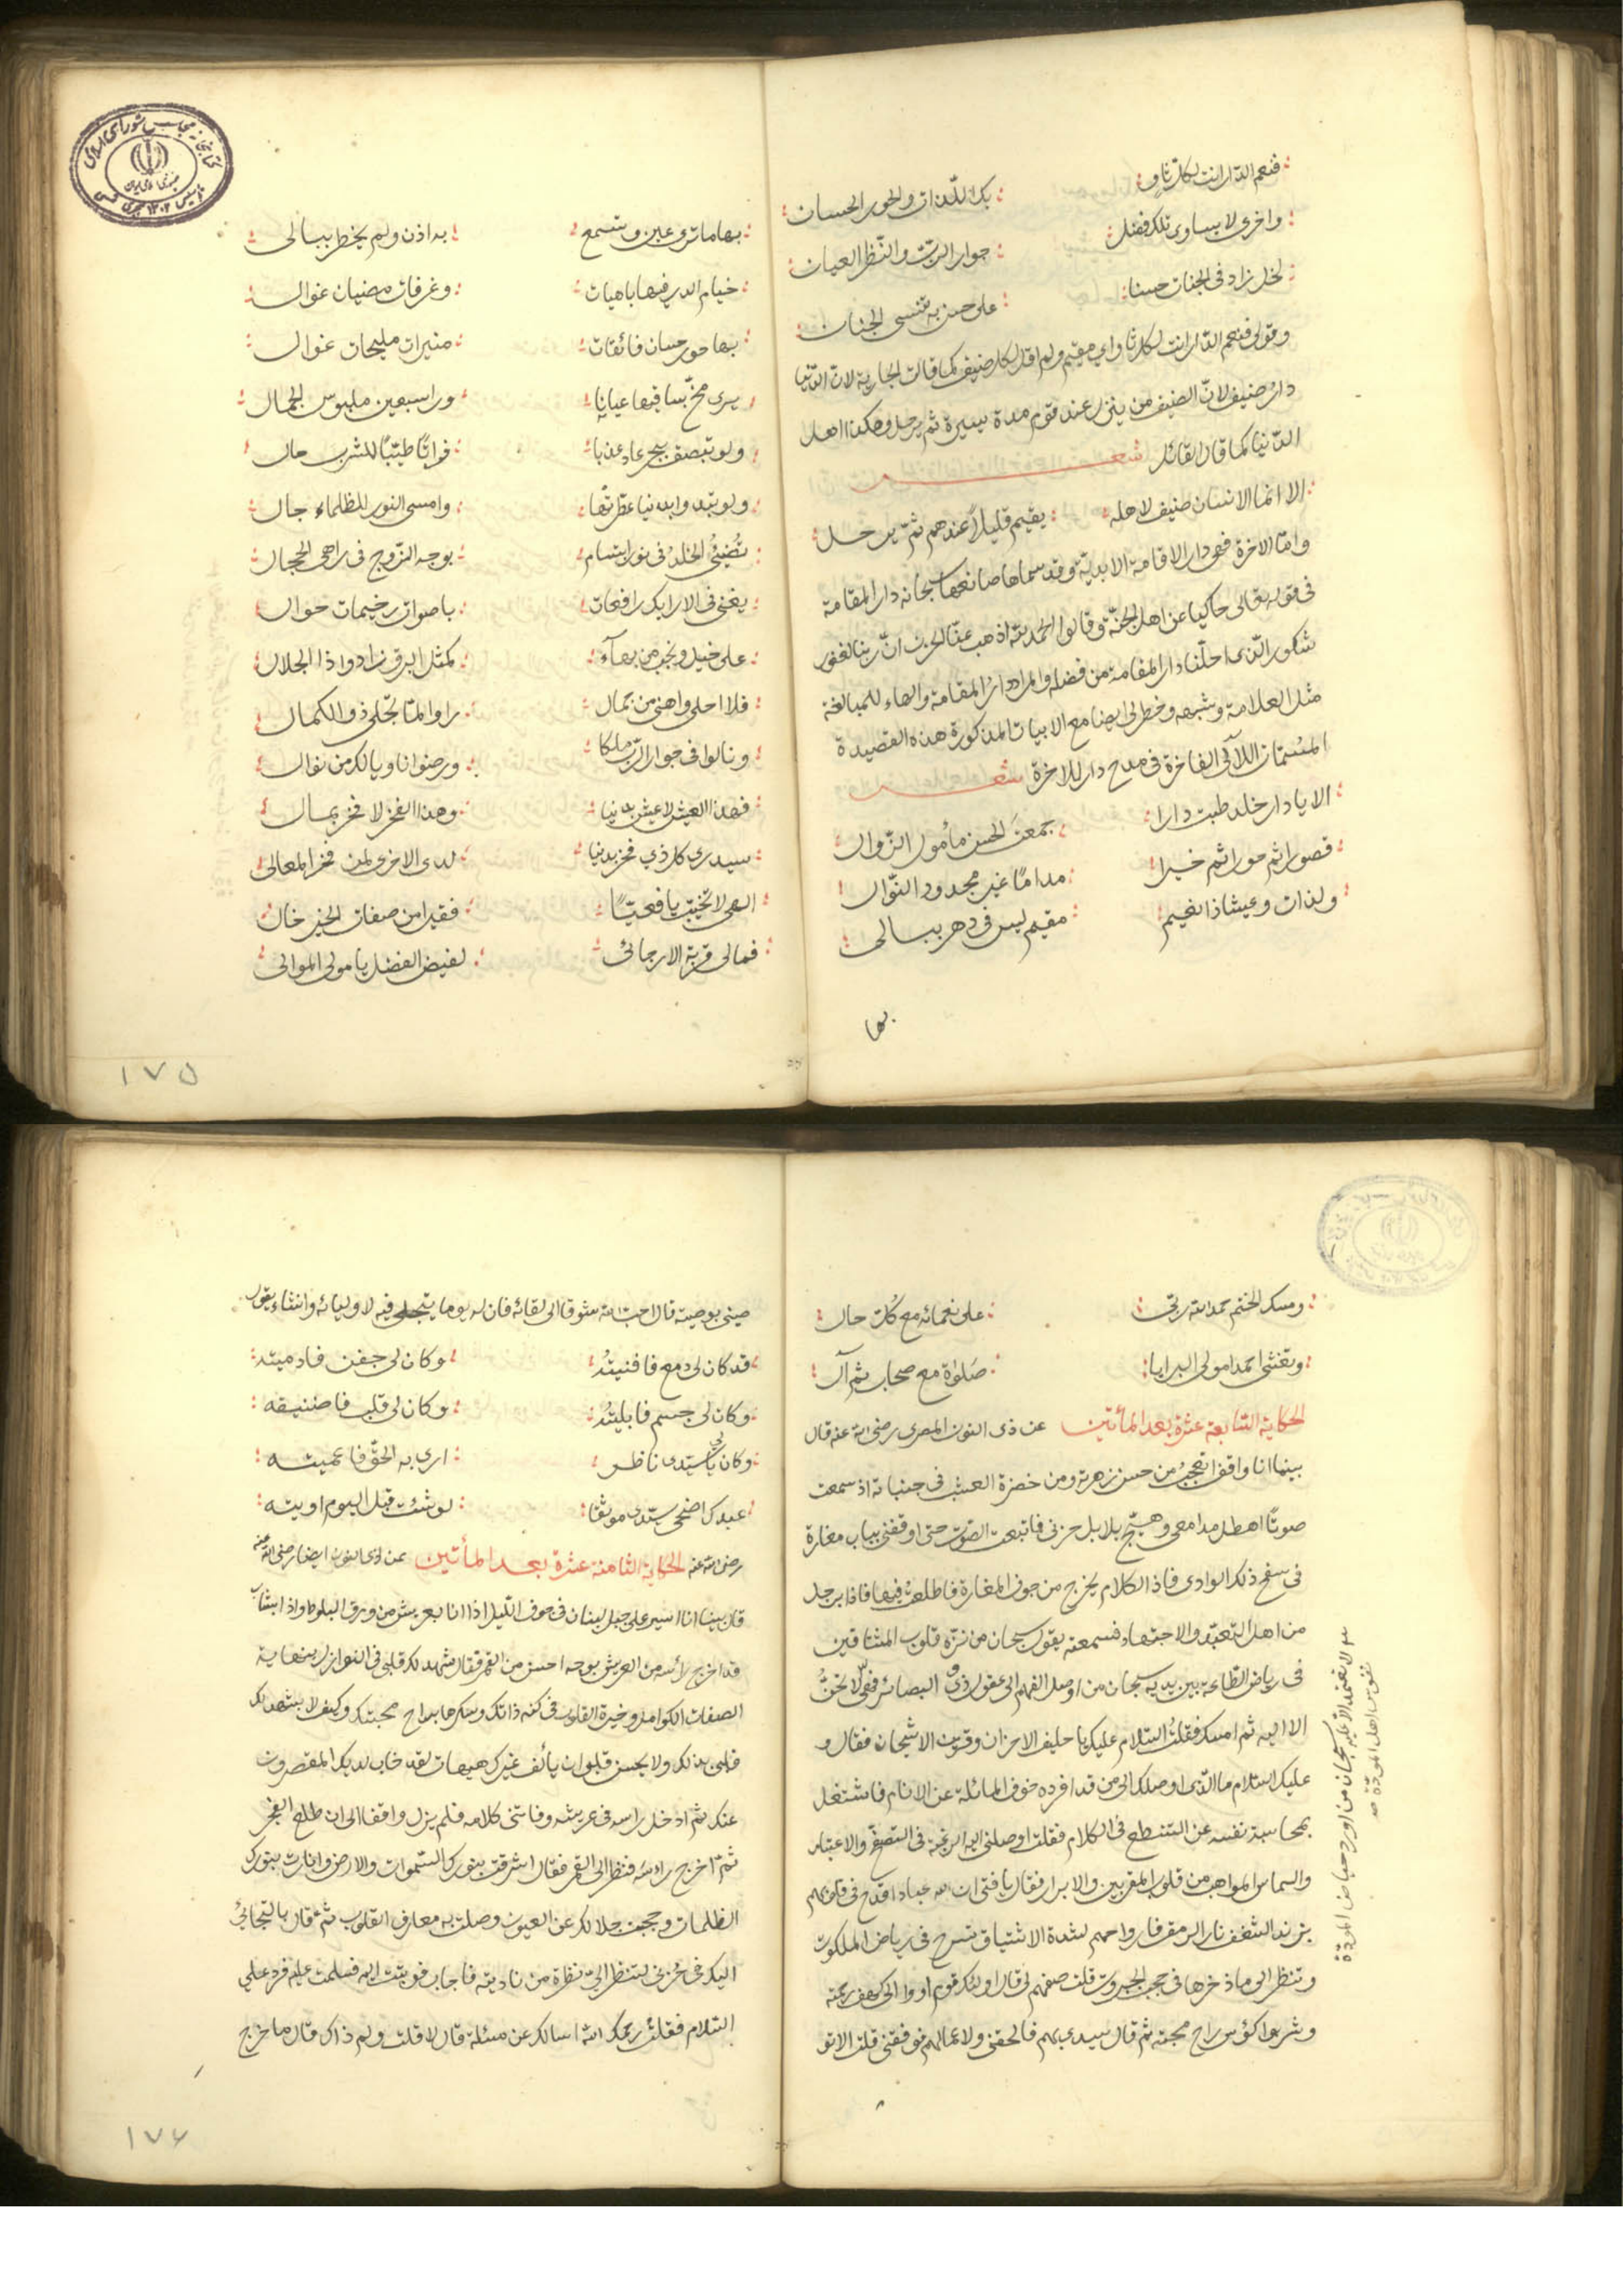 فنعم الدار انت لكل ثاو بك اللذات والحور الحسان
واخرى لا يساوى تلك فضل جوار الرب والنظر العيان
لخل زاد فى الجنات حسنا على حسن به تنسى الجنان
وقولى فنعم الدار انت لكل ثاو اي مقيم ولم اقل لكل ضيف كما قالت الجارية لان الدنيا
دار ضيف لان الضيف من ينزل عند قوم مدة يسيرة ثم يرحل وهكذا اهل
الدنيا كما قال القائل شعر
الا انما الانسان ضيف لاهله يقيم قليلا عندهم ثم يرحل
واما الاخرة فهى دار الاقامة الابدية وقد سماها صانعها سبحانه دار المقامة
فى قوله تعالى حاكيا عن اهل الجنة وقالوا الحمد لله اذهب عنا الحزن ان ربنا لغفور
شكور الذى احلنا دار المقامة من فضله والمراد دار المقامة والهاء للمبالغة
مثل العلامة وشبهه وخطر لى ايضا مع الابيات المذكورة هذه القصيدة
المسماة اللآلى الفاخرة فى مدح دار للاخرة شعر
الا يا دار خلد طبت دارا جمعت الحسن مأمول الزوال
قصورا ثم حورا ثم خيرا مداما غير مجدود النوال
ولذات وعيشا ذا نعيم مقيم ليس فى دهر ببالى
بها
بها ما ترى عين وتسمع به اذن ولم يخطر ببالى
خيام الدر فيها باهيات وغرفات مضيات غوال
بها حور حسان فائقات منيرات مليحات غوال
يرى مخ بساقيها عيانا ورا سبعين ملبوس الجمال
ولو تبصق ببحر عاد عذبا فراتا طيبا للشرب حال
ولو تبدوا بدنيا عطرتها وامسى النور للظلماء جال
تضيئ الخلد فى نور ابتسام بوجه الزوج فى راهى الحجال
يغنى فى الارايك رافعات باصوات رخيمات حوال
على خيل ونجب من بهاء كمثل البرق زادوا ذا الجلال
فلا احلى واهنى من جمال راوا لما تجلى ذو الكمال
ونالوا فى جوار الرب ملكا ورضوانا ويالك من نوال
فهذا العيش لا عيش بدنيا وهذا الفخر لا فخر بمال
سيدرى كل ذي فخر بدنيا لدى الاخرى لمن فخر المعالى
الهى لا تخيب يافعيا فقيرا من صفات الخير خال
فمالى قربة الا رجائى لفيض الفضل يا مولى الموالى
١٧٥
ومسك الختم حمد الله ربى على نعمائه مع كل حال
وتغشى احمدا مولى البرايا صلواة مع صحاب ثم آل
الحكاية السابعة عشرة بعد المأتين عن ذى النون المصرى رضى الله عنه قال
بينما انا واقف اتعجب من حسن زهرته ومن خضرة العشب فى جنباته اذ سمعت
صوتا اهطل مدامعى وهيج بلابل حزنى فاتبعت الصوت حتى اوقفنى بباب مغارة
فى سفح ذلك الوادى فاذا الكلام يخرج من جوف المغارة فاطلعت فيها فاذا برجل
من اهل التعبد والاجتهاد فسمعته يقول سبحان من نزه قلوب المشتاقين
فى رياض الطاعة بين يديه سبحان من اوصل الفهم الى عقول ذوى البصائر فهى لا تحن
الا اليه ثم امسك فقلت السلام عليك يا حليف الاحزان وقرين الاشجان فقال و
عليك السلام ما الذى اوصلك الى من قد افرده خوف المسائلة عن الانام فاشتغل
بمحاسبة نفسه عن التنطع فى الكلام فقلت اوصلنى اليه الرغبة فى التصفح والاعتبار
والتماس المواهب من قلوب المقربين والابرار فقال يا فتى ان لله عبادا اقدح فى قلوبهم
بزند الشغف نار الرمق فارواحهم لشدة الاشتياق تسرح فى رياض الملكوت
وتنظر الى ما ذخر لها فى حجب الجبروت قلت صفهم لى قال اولئك قوم اووا الى كهف رحمته
وشربوا كؤس راح محبته ثم قال سيدى بهم فالحقنى ولاعمالهم فوفقنى قلت الا تو
لا تعتمد الا عليه سبحان من اورد حياض المودة
نفوس اهل المودة صح
صينى بوصية قال احب الله شوقا الى لقائه فان له يوما يتجلى فيه لاوليائه وانشاء يقول
قد كان لى دمع فافنيته وكان لى جفن فادميته
وكان لى جسم فابليته وكان لى قلب فاضنيقه
وكان لى يا سيدى ناظر ارى به الحق فاعميته
عبدك اضحى سيدى موثقا لو شئت قبل اليوم اويته
رضى الله عنه الحكاية الثامنة عشرة بعد المأتين عن ذى النون ايضا رضى الله عنه
قال بينا انا اسير على جبل لبنان فى جوف الليل اذا انا بعريش من ورق البلوط واذا بشاب
قد اخرج رأسه من العريش بوجه احسن من القمر فقال شهد لك قلبى فى النوازل بنهاية
الصفات الكوامل وخيرة القلوب فى كنه ذاتك وسكرها براح محبتك وكيف لا يشهد لك
قلبى بذلك ولا يحسن قلبى ان يألف غيرك هيهات لقد خاب لديك المقصرون
عنك ثم ادخل راسه فى عريشه وفاتنى كلامه فلم يزل واقفا الى ان طلع الفجر
ثم اخرج راسه فنظر الى القمر فقال اشرقت بنورك السموات والارض وانارت بنورك
الظلمات وحجبت جلالك عن العيون وصلت به معارف القلوب ثم قال بالتجائى
اليك فى حزنى لتنظر الى نظرة من ناديته فاجاب فوثبت اليه فسلمت عليه فرد على
السلام فقلت رحمك الله اسالك عن مسئلة قال لا قلت ولم ذاك قال ما خرج
١٧٦